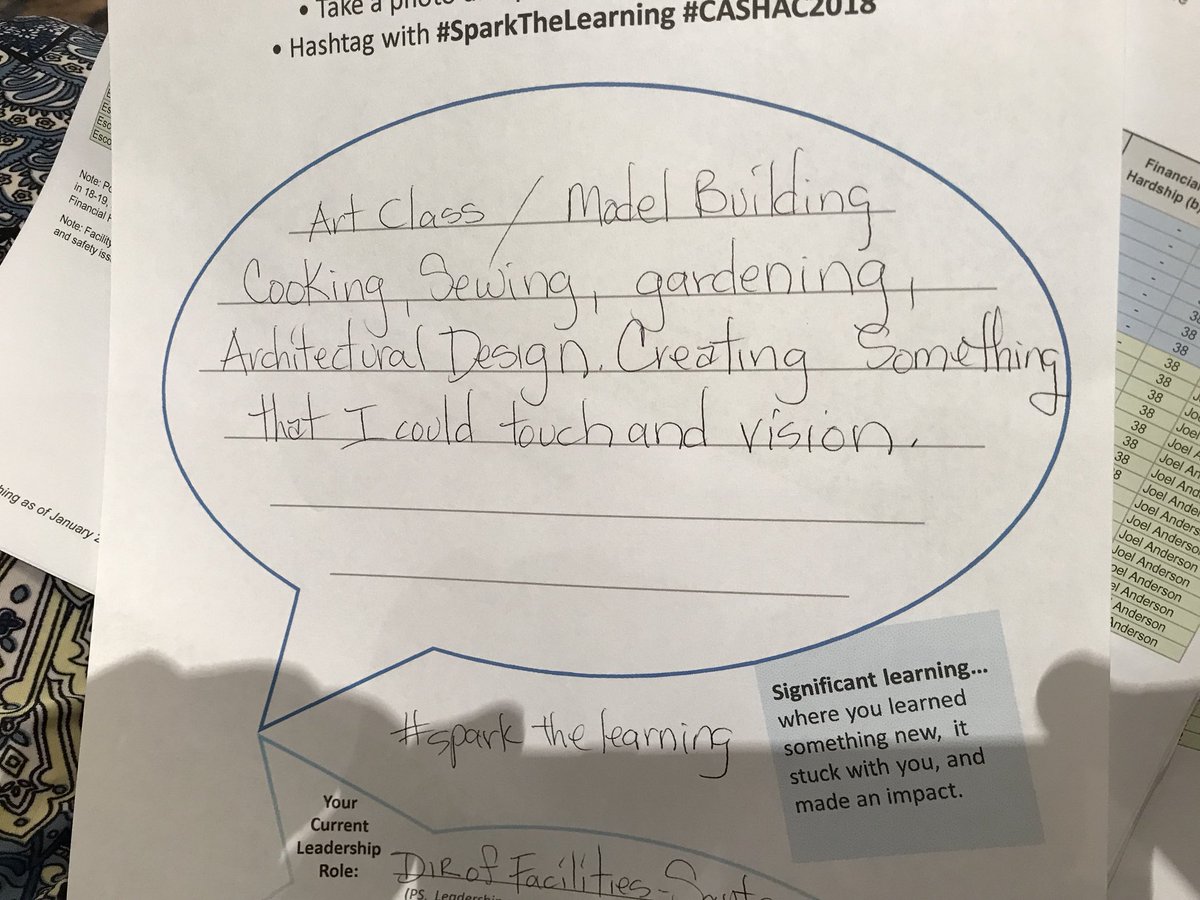 • Take a photo
• Hashtag with #SparkTheLearning #CASHAC2018
Art Class / Model Building
Cooking, Sewing, gardening,
Architectural Design. Creating Something
that I could touch and vision.
#spark the learning
Significant learning...
where you learned
something new, it
stuck with you, and
made an impact.
Your
Current
Leadership
Role:
Dir of Facilities -
(PS. Leadership
Esco
Note:
in 18-19,
Financial
Note: Facility
and safety iss
as of January
Financial
Hardship (b)
-
-
-
-
-
-
38
38
38
38
38
38
38
38
38
38
Joel Anderson
Joel Anderson
Joel Anderson
Joel Anderson
Anderson
Anderson